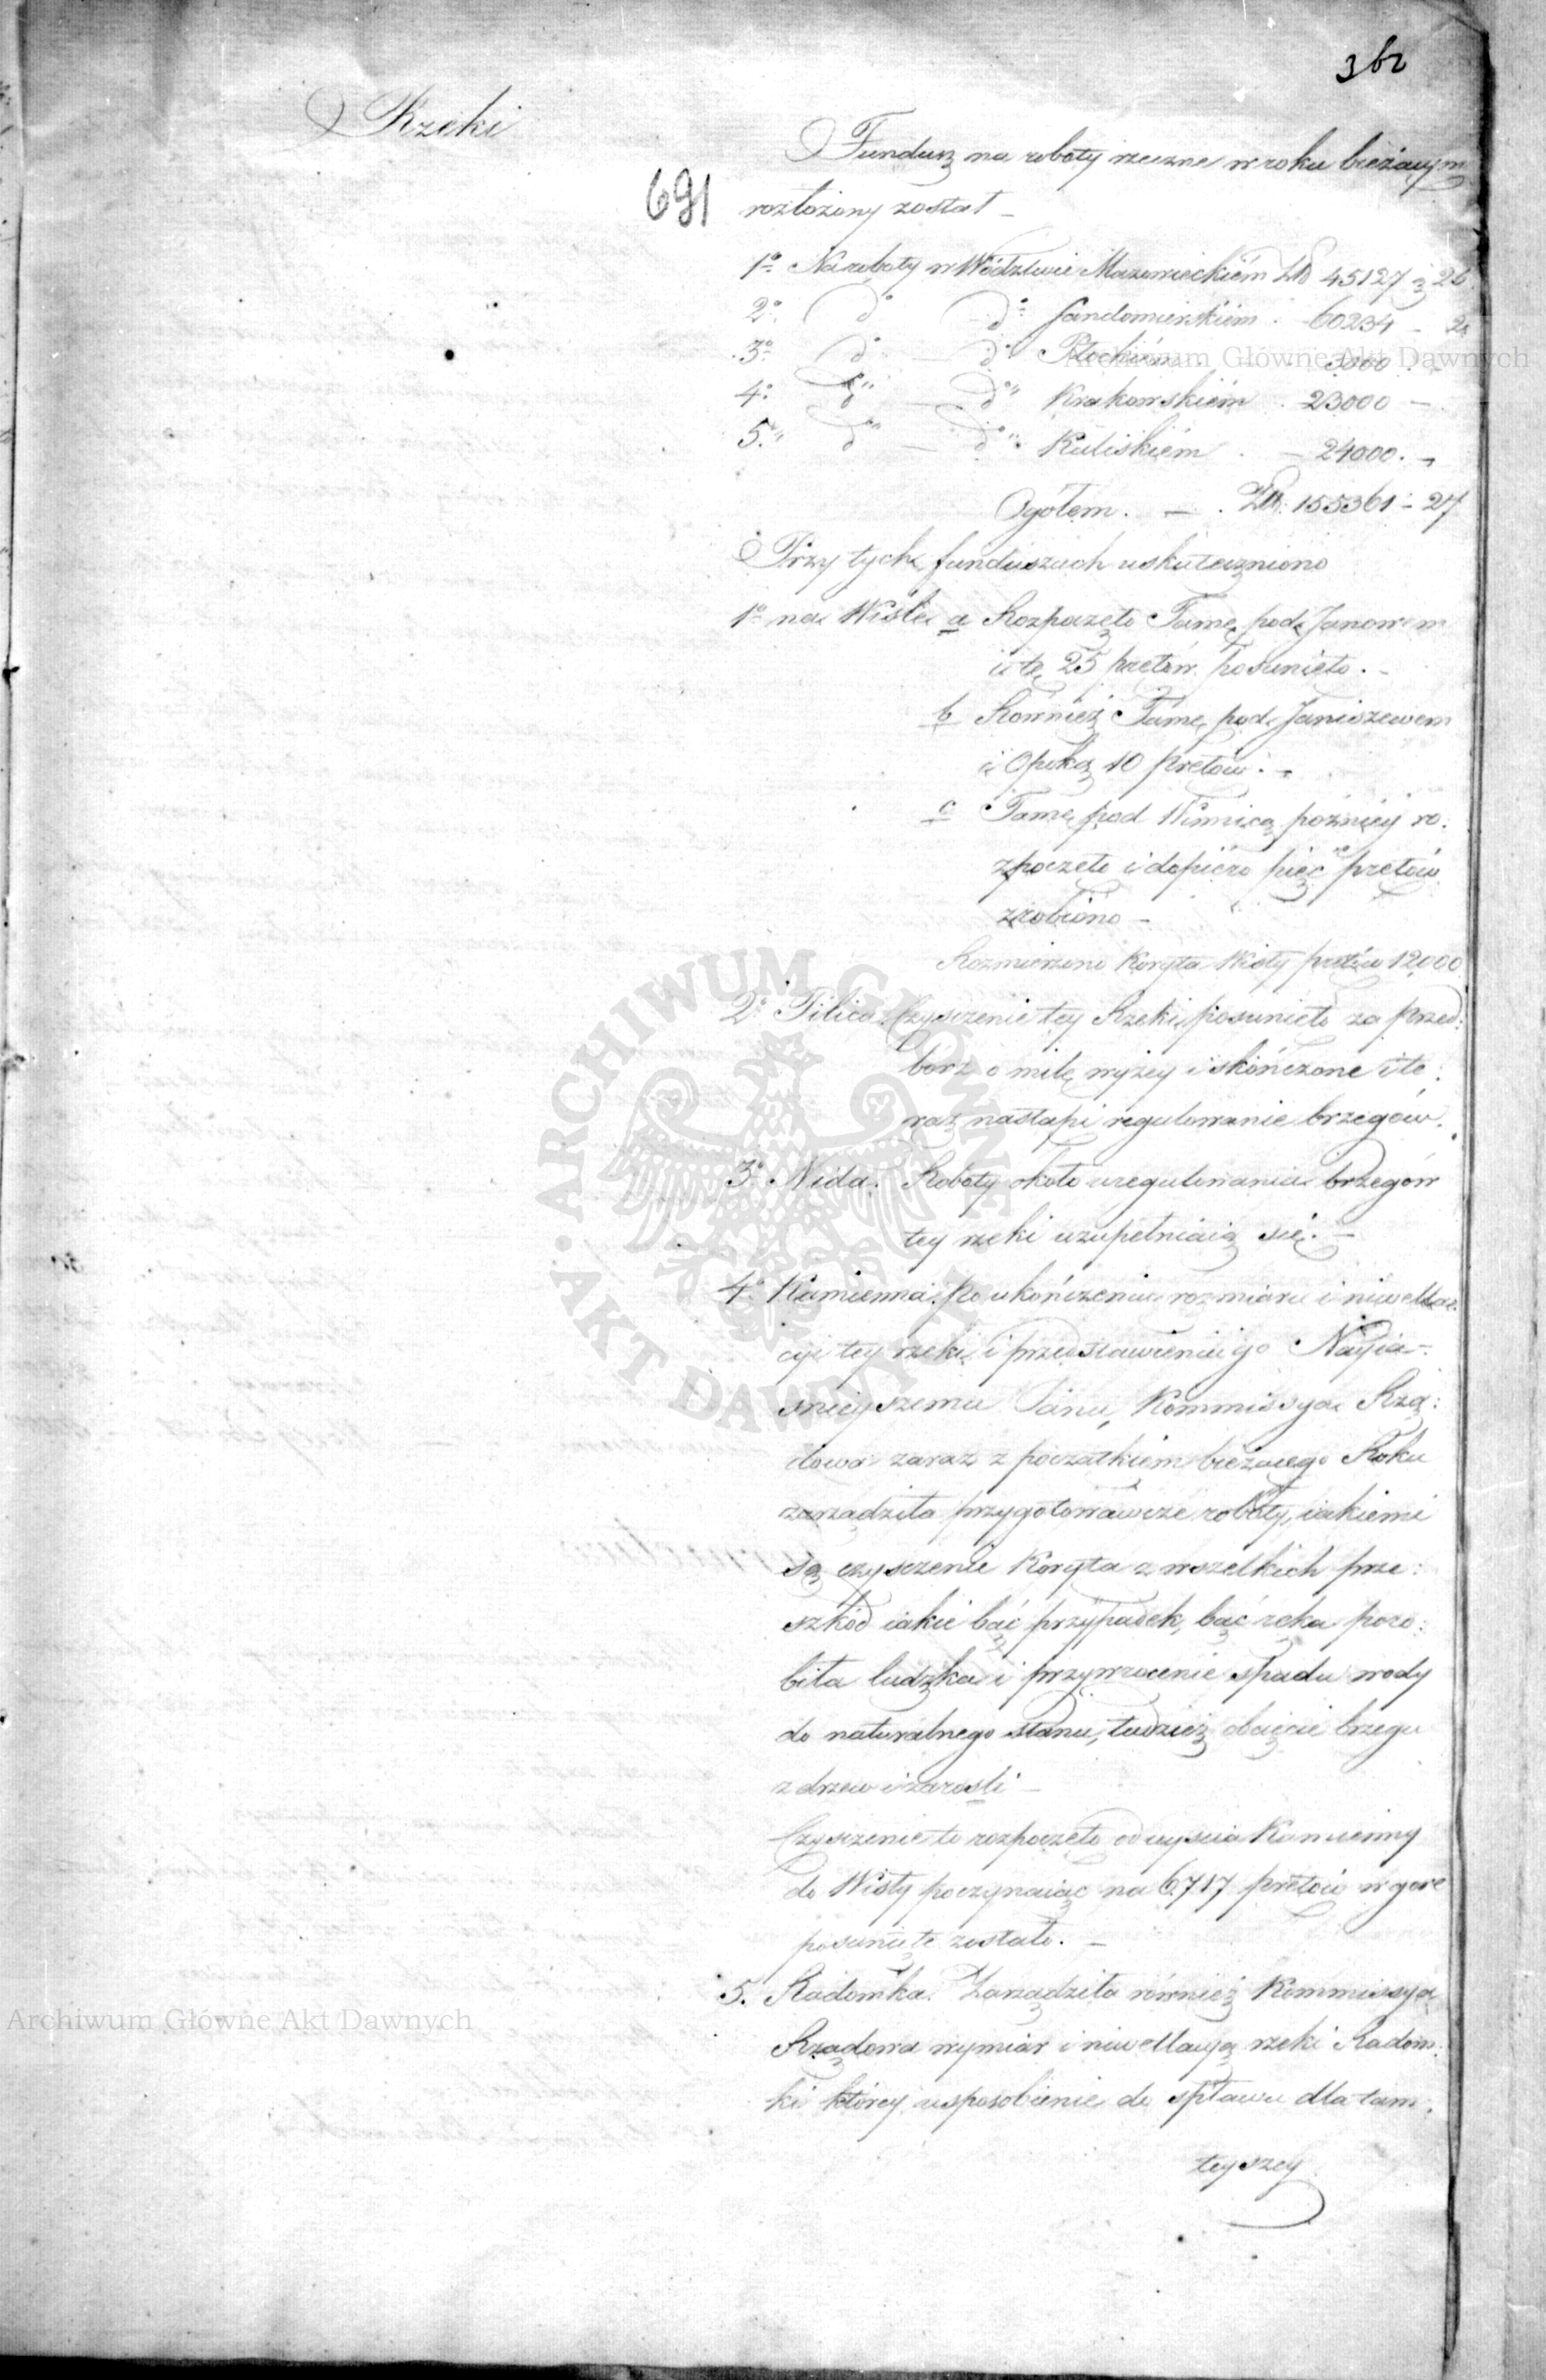 362
Rzeki
691
Fundusz na roboty rzeczne w roku bieżącym
rozłożony został –
1º Na roboty w Wództwie Mazowieckiém ZłP 45127 g 25
2º dº dº Sandomierskiém . 60234 – 2
3º dº – dº Płockiém . 3000 . –
4º dº – dº Krakowskiém . 23000 –
5º dº – dº Kaliskiém . – 24000. –
Ogółem. – . ZłP. 155361 – 27
Przy tych funduszach uskuteczniono
1º na Wiśle a Rozpoczęto Tamę pod Janowem
i tę 25 prętów posunięto. –
b Również Tamę pod Janiszewem
i Opoką 10 prętów. –
c Tamę pod Winnicą pózniey ro:
zpoczęto i dopiéro pięć prętów
zrobiono –
Rozmierzono Koryta Wisły prętów 12,000
2º Pilica. Czysczenie tey Rzeki, posunięto za Przed:
borz o milę wyżey i skończone i te:
raz nastąpi regulowanie brzegów.
3º Nida. Roboty około uregulowania brzegów
tey rzeki uzupełniaią się. –
4º Kamienna. Po ukończeniu rozmiaru i niwellac:
cyi tey rzeki i przedstawieniu go Nayia–
śnieyszemu Panu, Kommissya Rzą:
dowa zaraz z początkiem bieżącego Roku
zarządziła przygotowawcze roboty, iakiemi
są czysczenie Koryta z wszelkich prze:
szkód iakie bąć przypadek, bąć ręka poro:
biła ludzka i przywrócenie spadu wody
do naturalnego stanu, tudzież obcięcie brzegu
z drzew i zarośli –
Czysczenie to rozpoczęto od uyscia Kamienny
do Wisły poczynaiąc na 6717 prętów w gorę
posunięte zostało. –
5. Radomka. Zarządziła również Kommissya
Rządowa wymiar i niwellacyą rzeki Radom:
ki którey usposobienie do spławu dla tam:
teyszey
Archiwum Główne Akt Dawnych
ARCHIWUM GŁÓWNE AKT DAWNYCH
Archiwum Główne Akt Dawnych